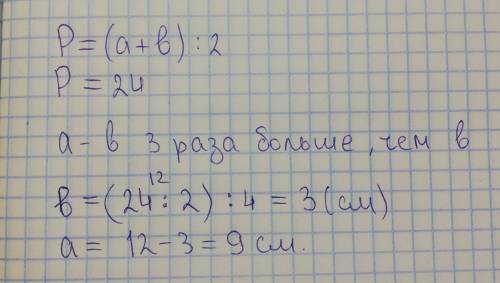 P = (a + b) : 2
P = 24
a - в 3 раза больше, чем b
12
b = (24 : 2) : 4 = 3 (см)
a = 12 - 3 = 9 см.